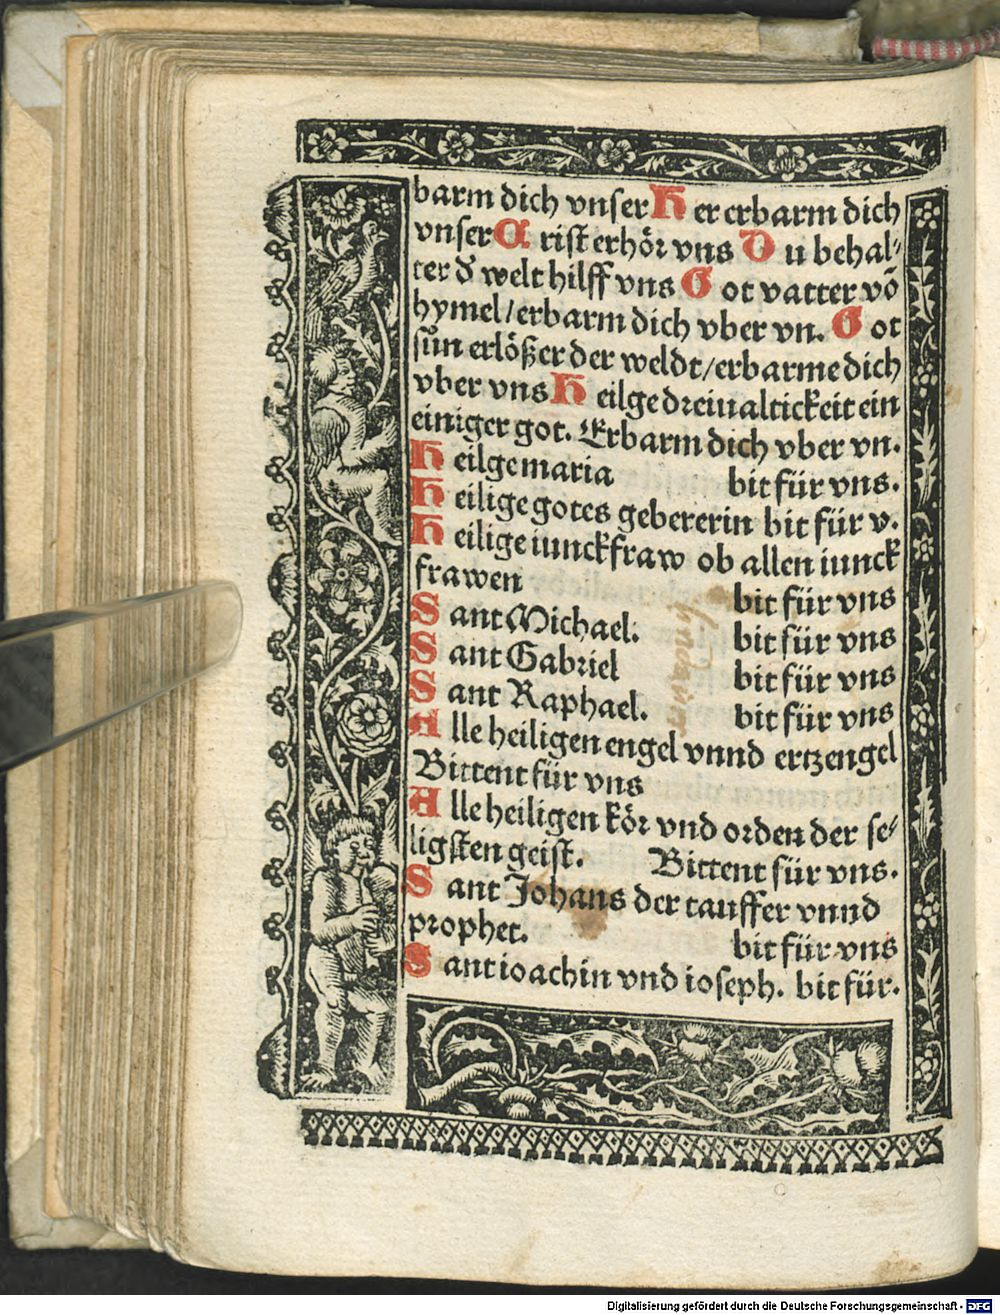 barm dich vnser Herr erbarm dich
vnser Crist erhör vns Du behal⸗
ter d̕ welt hilff vns Got vatter võ
hymel/erbarm dich vber vn. Got
sün erlößer der weldt/erbarme dich
vber vns Heilge dreiualtickeit ein
einiger got. Erbarm dich vber vn.
Heilge maria bit für vns.
Heilige gotes gebererin bit für v.
Heilige iunckfraw ob allen iunck
frawen bit für vns
Sant Michael. bit für vns
Sant Gabriel bit für vns
Sant Raphael. bit für vns
Alle heiligen engel vnnd ertzengel
Bittent für vns
Alle heiligen kör vnd orden der se⸗
ligsten geist. Bittent für vns.
Sant Johans der tauffer vnnd
prophet. bit für vns
Sant ioachin vnd ioseph. bit für.
Digitalisierung gefördert durch die Deutsche Forschungsgemeinschaft - DFG